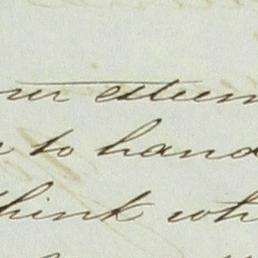 our esteem
to hand
think wh